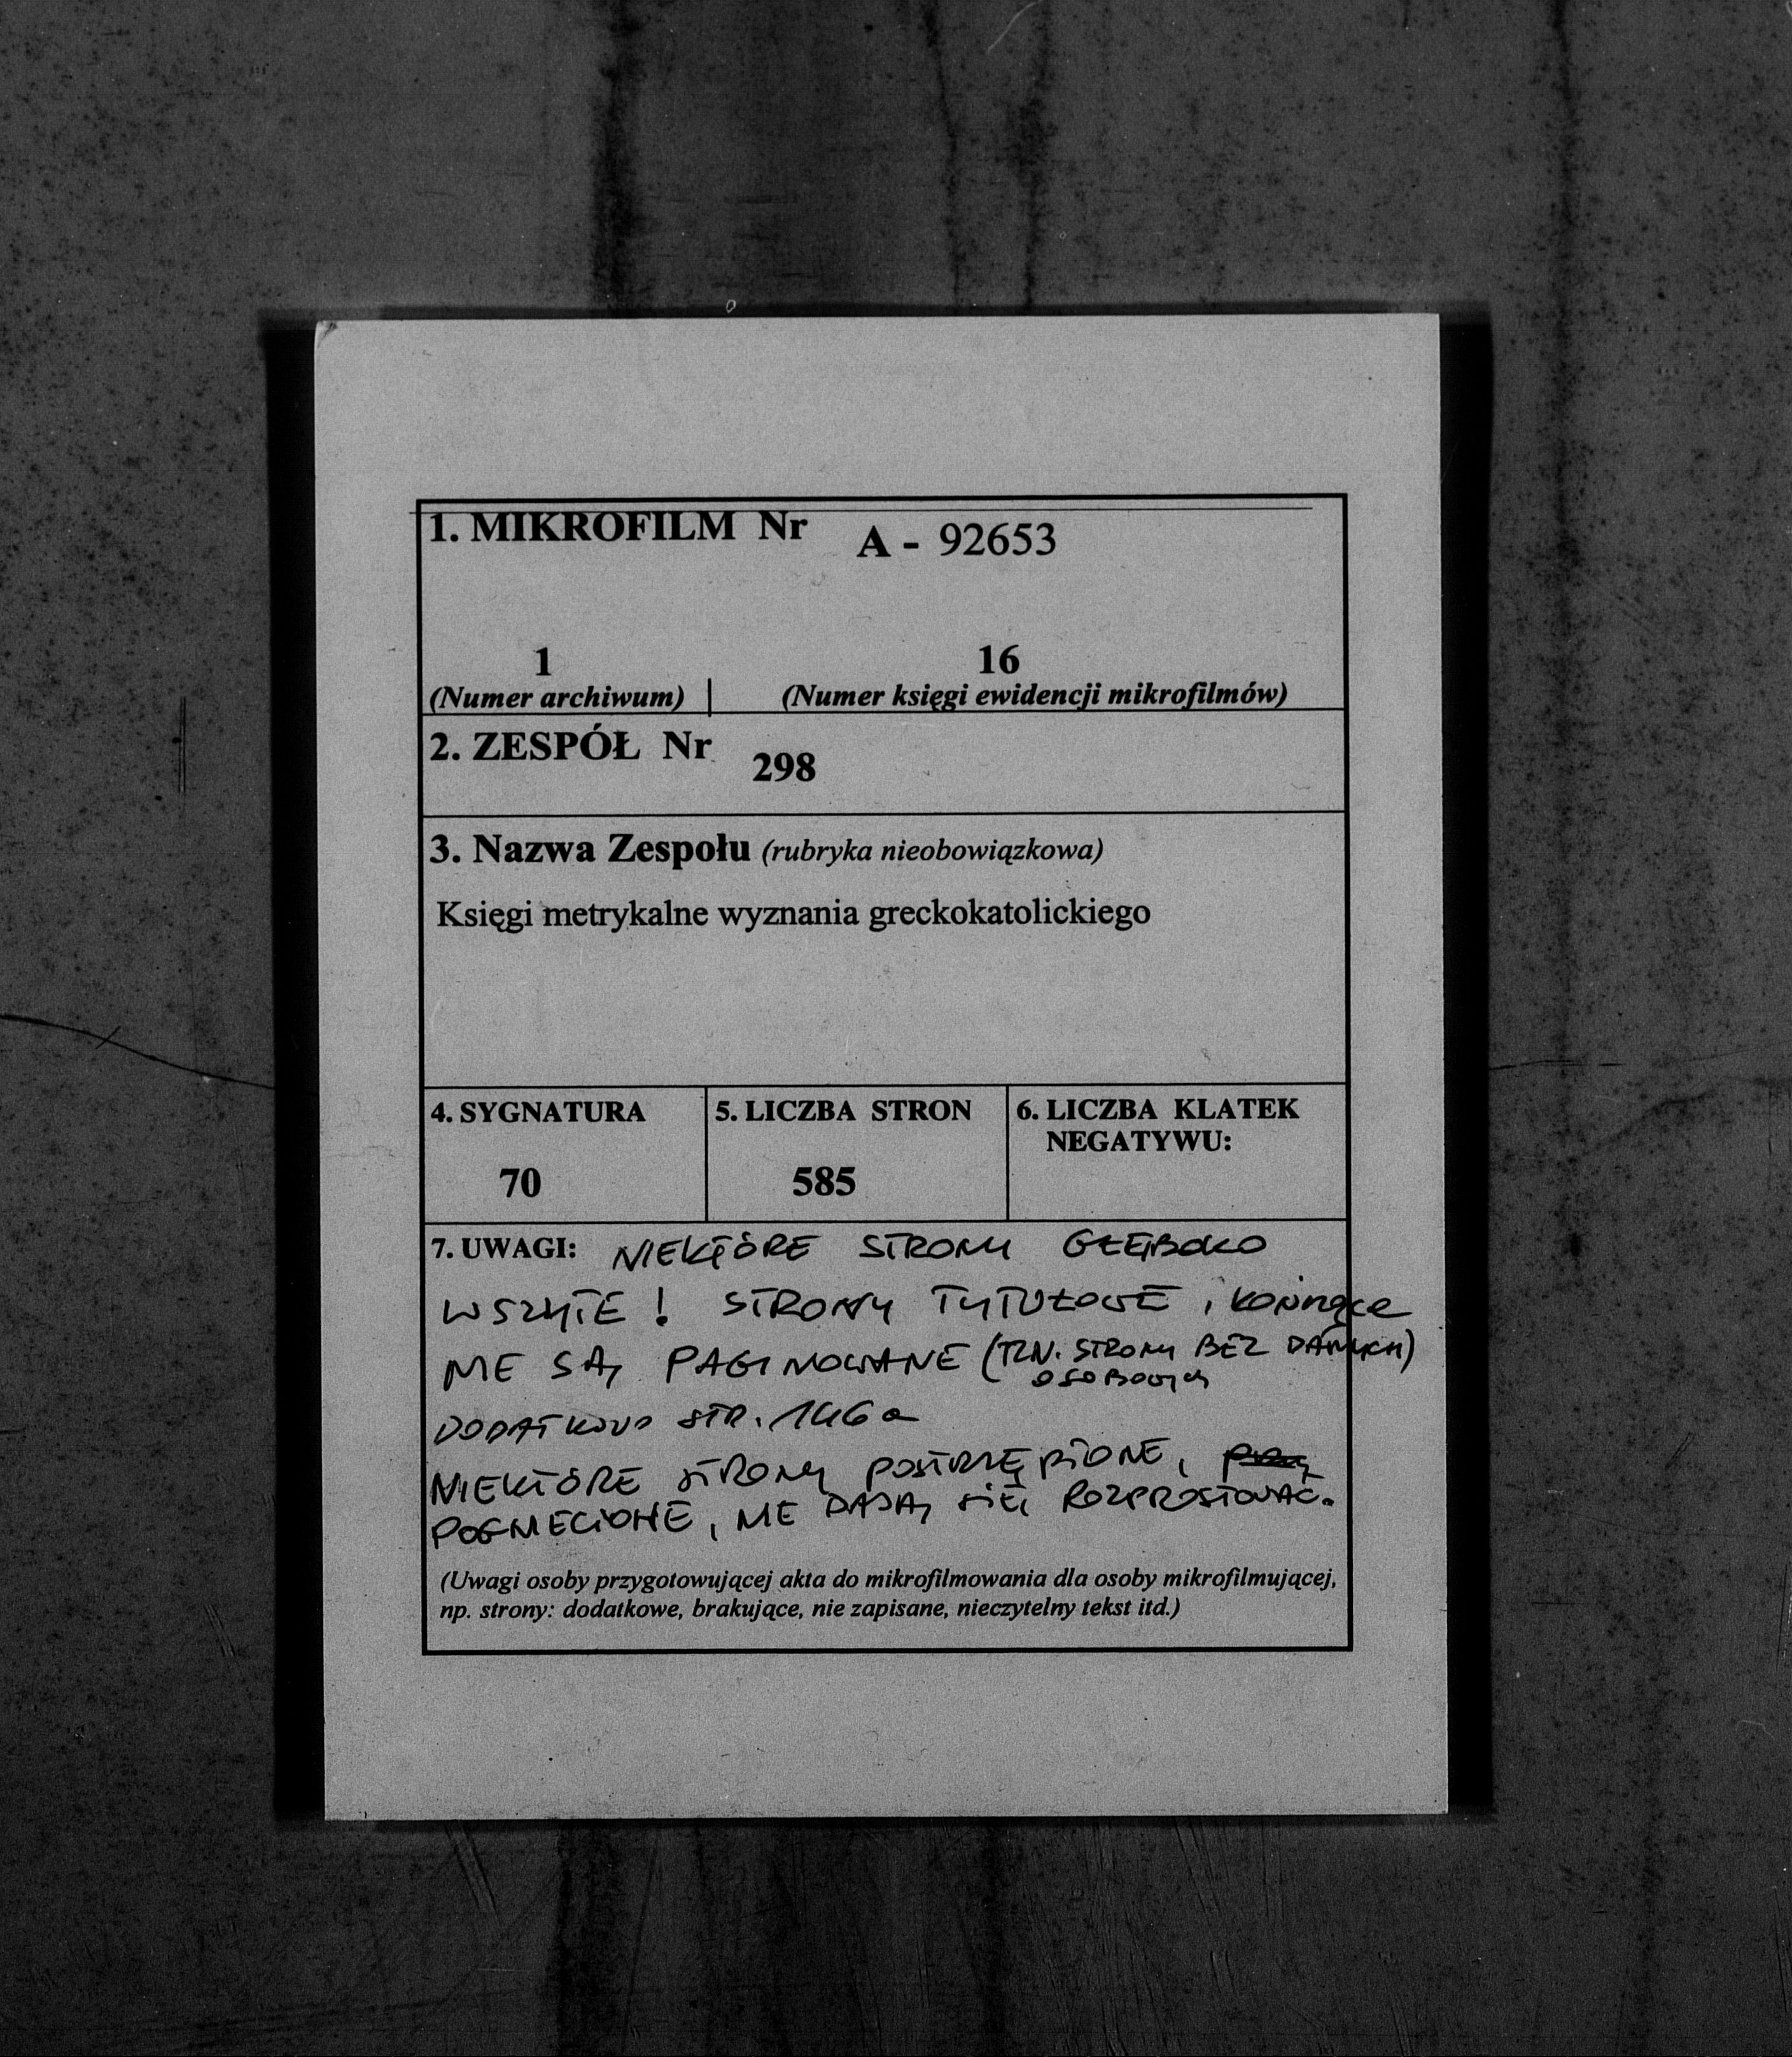 1. MIKROFILM Nr A - 92653
1 16
(Numer archiwum) | (Numer księgi ewidencji mikrofilmów)
2. ZESPÓŁ Nr 298
3. Nazwa Zespołu (rubryka nieobowiązkowa)
Księgi metrykalne wyznania greckokatolickiego
4. SYGNATURA
70
5. LICZBA STRON
585
6. LICZBA KLATEK
NEGATYWU:
7. UWAGI: NIEKTÓRE STRONY GŁĘBOKO
WSZYTE! STRONY TYTUŁOWE i KOŃCZĄCE
NIE SĄ PAGINOWANE (TZN. STRONY BEZ DANYCH)
OSOBOWYCH
DODATKOWO STR. 146a
NIEKTÓRE STRONY POSTRZĘPIONE,
POGNIECIONE, NIE DADZĄ SIĘ ROZPROSTOWAĆ.
(Uwagi osoby przygotowującej akta do mikrofilmowania dla osoby mikrofilmującej,
np. strony: dodatkowe, brakujące, nie zapisane, nieczytelny tekst itd.)